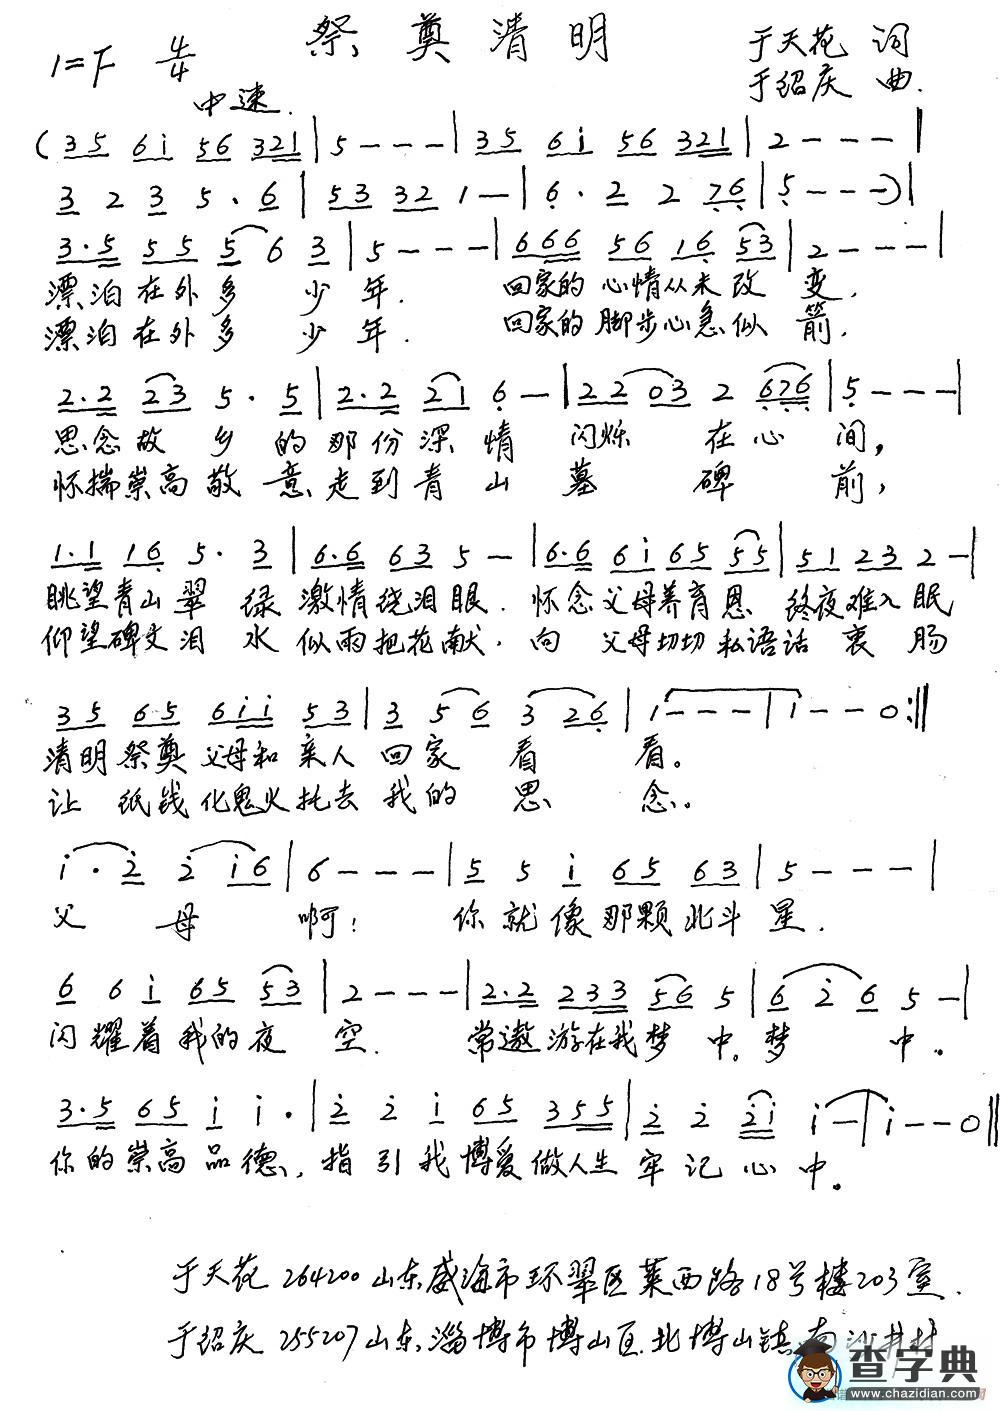 祭奠清明
1=F 4/4
于天花 词
于绍庆 曲.
中速.
(35 6i 56 321|5---|35 6i 56 321|2---|
3 2 3 5·6|53 32 1—|6·2 2 76|5---)|
3·5 55 5 6 3|5---|666 56 16 53|2---|
漂泊在外多 少 年. 回家的 心情从未 改 变.
漂泊在外多 少 年. 回家的 脚步心急似 箭.
2·2 23 5·5|2·2 21 6—|22 03 2 676|5---|
思念故 乡 的 那份深 情 闪烁 在心 间,
怀揣崇高敬 意走到青 山 墓 碑 前,
1·1 16 5·3|6·6 63 5—|6·6 6i 65 55|51 23 2—|
眺望青山翠 绿 激情绕泪眼. 怀念父母养育恩 终夜难入眠
仰望碑文泪 水 似雨把花献. 向 父母切切 私语话 衷 肠
35 65 6ii 53|3 5 6 3 26|1---|i--0:‖
清明祭奠 父母和 亲人 回家 看 看。
让 纸钱化鬼火托去 我的 思 念。
i·2 2 i6|6---|5 5 i 65 63|5---|
父 母 啊! 你就像那颗北斗 星.
6 6 i 65 53|2---|2·2 233 56 5|6 2 6 5—|
闪耀着我的夜 空. 常遨游在我梦 中。梦 中。
3·5 65 i i·|2 2 i 65 355|2 2 2i i—|i--0‖
你的崇高品德, 指引我博爱做人生 牢记心中。
于天花 264200 山东威海市环翠区莱西路18号楼203室.
于绍庆 255207 山东淄博市博山区北博山镇南沙井村
查字典
www.chazidian.com